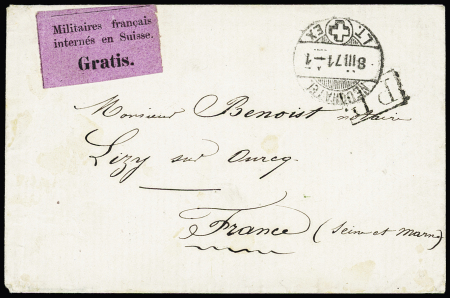 Militaires français
internés en Suisse.
Gratis.
LT EX
8 III 71 - 1
NEUCHATEL
P.P.
Monsieur Benoist notaire
Lizy sur Ourcq.
France (Seine et Marne)